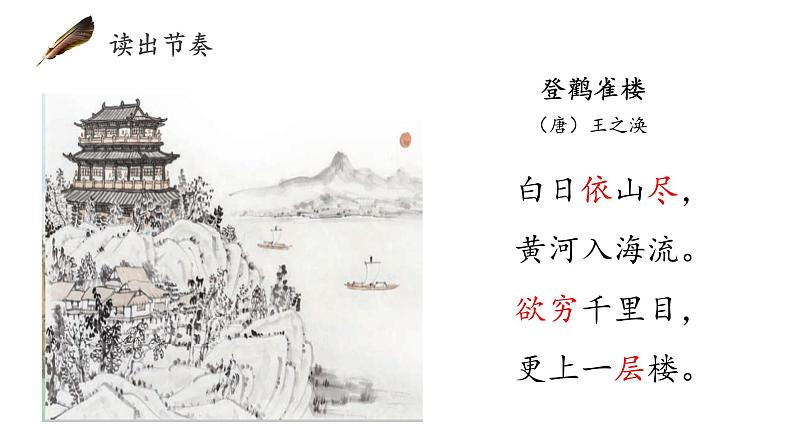 读出节奏
登鹳雀楼
（唐）王之涣
白日依山尽，
黄河入海流。
欲穷千里目，
更上一层楼。